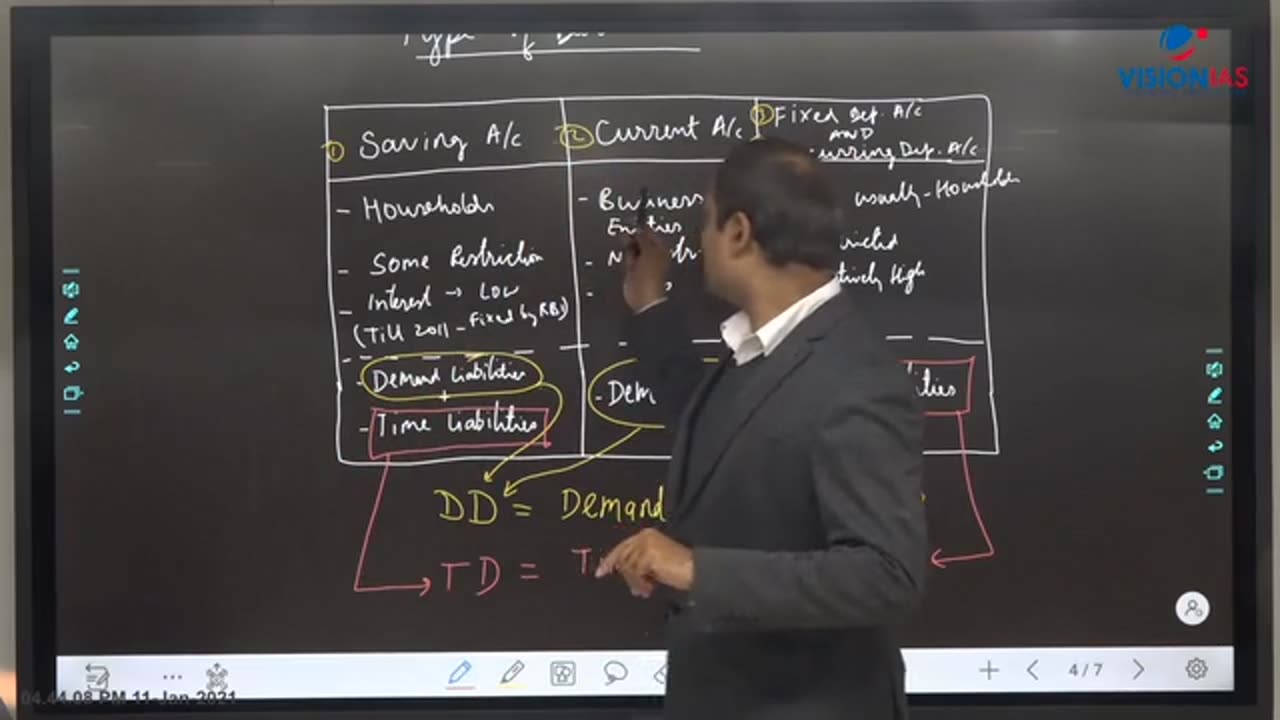 Type of
VISIONIAS
① Saving A/c
② Current A/c
③ Fixed Dep. A/c
AND
urring Dep. A/c
- Households
- Business
Entities
usually - Households
- Some Restriction
- Interest → Low
(Till 2011 - Fixed by RBI)
tively High
- Demand Liabilities
+
- Time Liabilities
- Dem
lities
DD = Demand
TD = Ti
4/7
04.44.08 PM 11-Jan-2021